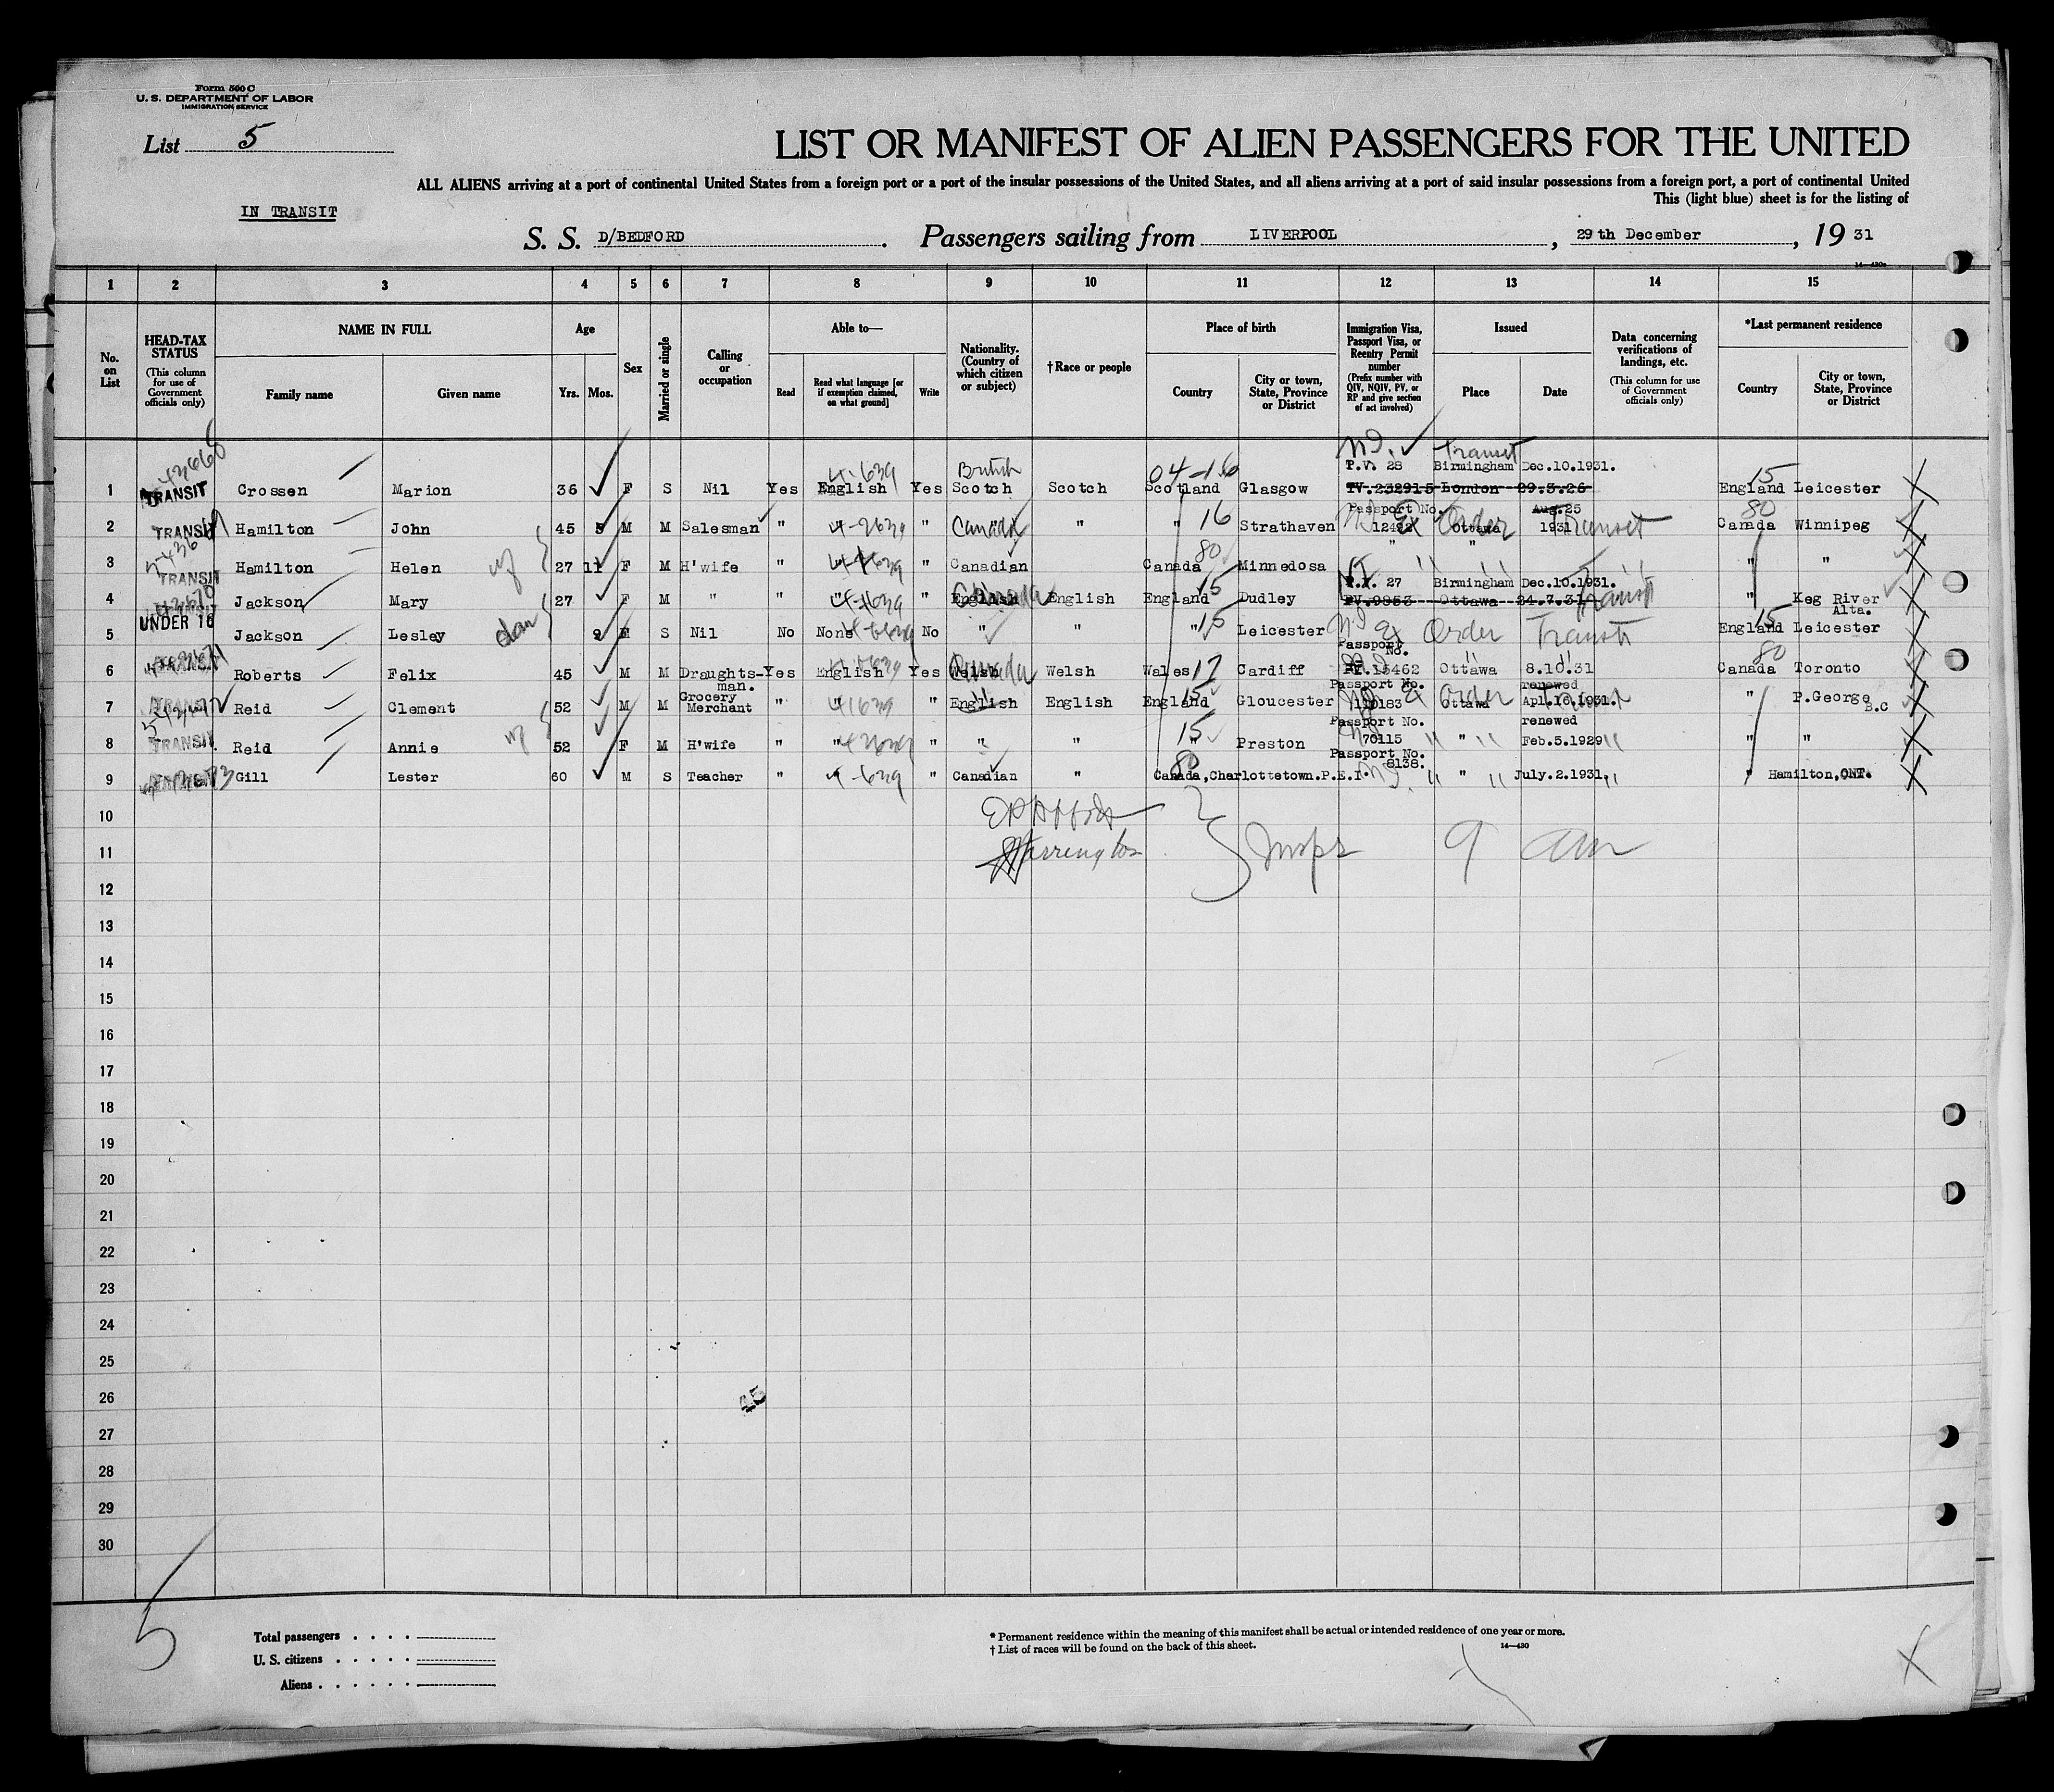 Form 500 C
U. S. DEPARTMENT OF LABOR
IMMIGRATION SERVICE
List 5
LIST OR MANIFEST OF ALIEN PASSENGERS FOR THE UNITED
ALL ALIENS arriving at a port of continental United States from a foreign port or a port of the insular possessions of the United States, and all aliens arriving at a port of said insular possessions from a foreign port, a port of continental United
This (light blue) sheet is for the listing of
IN TRANSIT
S. S. D/BEDFORD. Passengers sailing from LIVERPOOL, 29th December, 19 31
14—430c
1 2 3 4 5 6 7 8 9 10 11 12 13 14 15
No. on List
HEAD-TAX STATUS (This column for use of Government officials only)
NAME IN FULL Family name Given name
Age Yrs. Mos.
Sex
Married or single
Calling or occupation
Able to— Read Read what language [or if exemption claimed, on what ground] Write
Nationality. (Country of which citizen or subject)
†Race or people
Place of birth Country City or town, State, Province or District
Immigration Visa, Passport Visa, or Reentry Permit number (Prefix number with QIV, NQIV, PV, or RP and give section of act involved)
Issued Place Date
Data concerning verifications of landings, etc. (This column for use of Government officials only)
*Last permanent residence Country City or town, State, Province or District
British 04-16 P.V. 28 Transit Birmingham Dec.10.1931. 15
1 TRANSIT Crossen Marion 36 F S Nil Yes English Yes Scotch Scotch Scotland Glasgow PV.232915 London 29.3.26 England Leicester
Passport No. Aug.25 80
2 TRANSIT Hamilton John 45 M M Salesman " " Canada " " 16 Strathaven Ottawa 1931 Transit Canada Winnipeg
3 TRANSIT Hamilton Helen wf 27 11 F M H'wife " " Canadian Canada 80 Minnedosa " " " "
P.V. 27 Birmingham Dec.10.1931.
4 TRANSIT Jackson Mary 27 F M " " " " English English England 15 Dudley PV.9853 Ottawa 24.7.31 Transit " Keg River Alta.
5 UNDER 16 Jackson Lesley 9 S Nil No None No " " " 15 Leicester Ex Order Transit England 15 Leicester
Passport No.
6 TRANSIT Roberts Felix 45 M M Draughts-man. Yes English Yes Welsh Canada Welsh Wales 17 Cardiff 15462 Ottawa 8.10.31 Canada 80 Toronto
Passport No. renewed
7 TRANSIT Reid Clement 52 M M Grocery Merchant " " " English English England 15 Gloucester Ex Order Ottawa Apl.16.1931. " P.George B.C
Passport No. renewed
8 TRANSIT Reid Annie wf 52 F M H'wife " " " " " " 15 Preston 70115 " Feb.5.1929 " "
Passport No. 8138.
9 Gill Lester 60 M S Teacher " " " Canadian " Canada, Charlottetown.P.E.I. " July.2.1931. " Hamilton,ONT.
10
11 Harrington Insps 9 am
12
13
14
15
16
17
18
19
20
21
22
23
24
25
26
27
28
29
30
5
Total passengers . . . .
U. S. citizens . . . . .
Aliens . . . . . .
* Permanent residence within the meaning of this manifest shall be actual or intended residence of one year or more.
† List of races will be found on the back of this sheet.
14—430